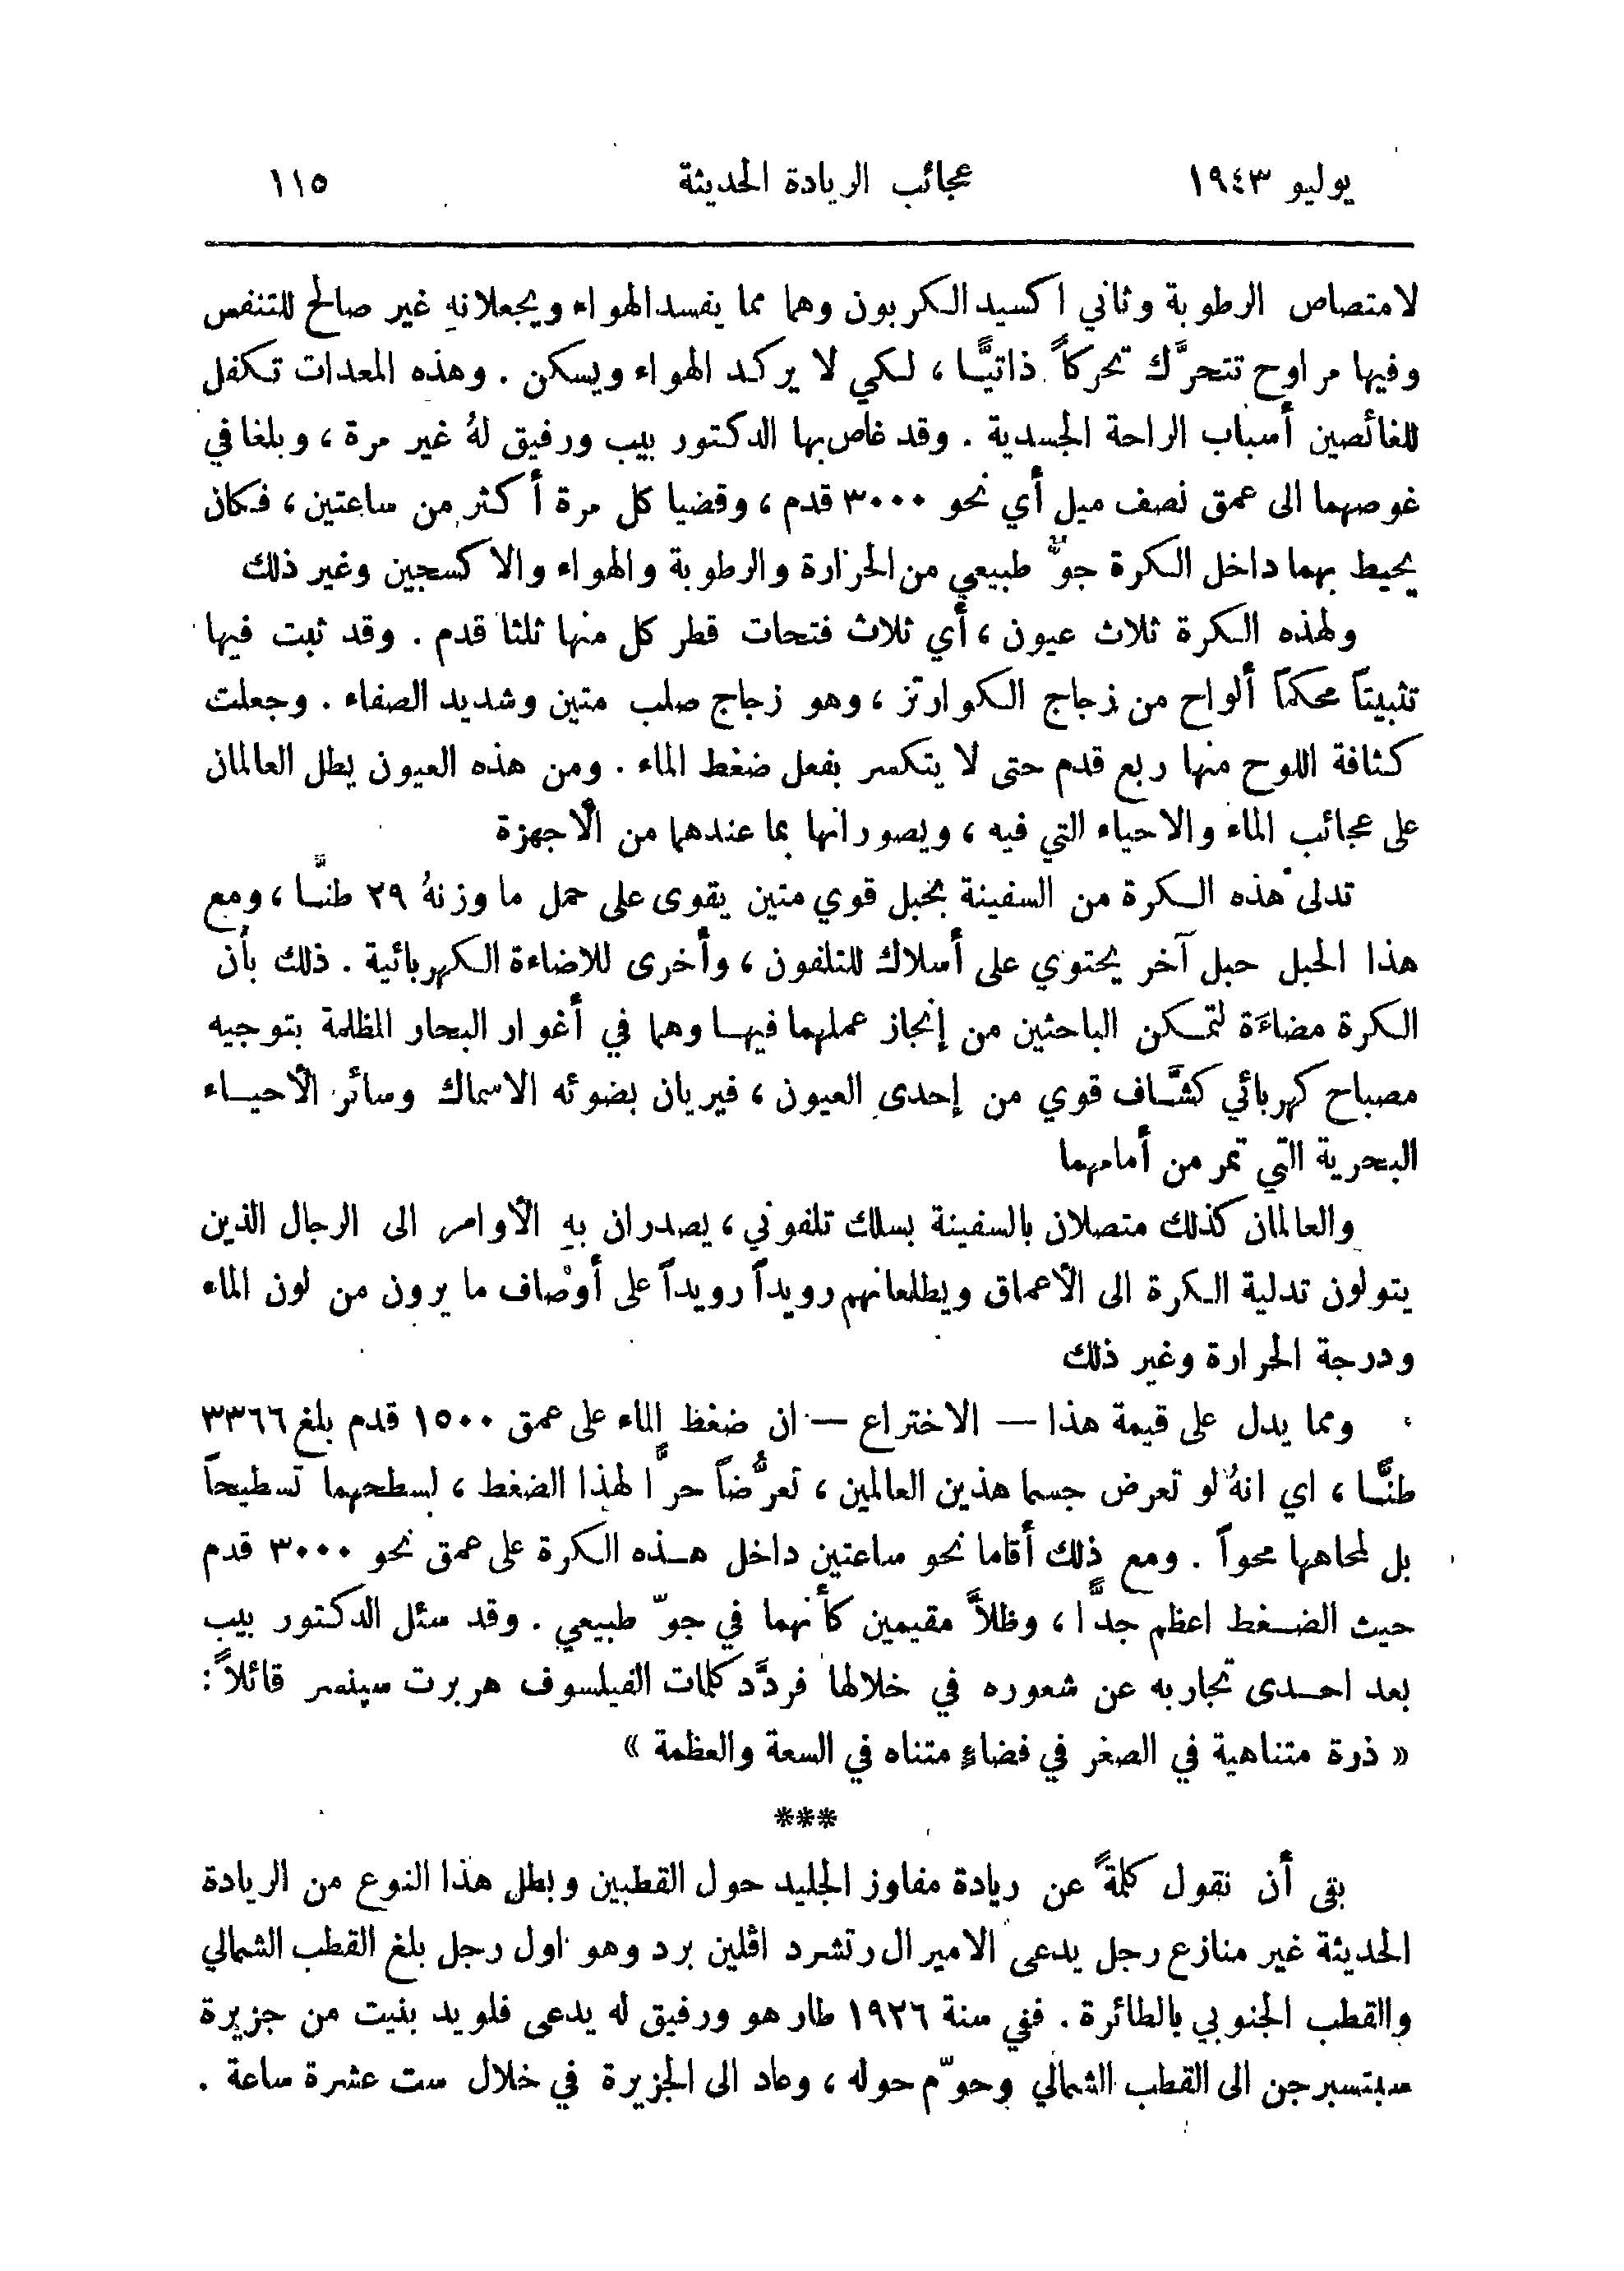 يوليو ١٩٤٣ عجائب الريادة الحديثة ١١٥
لامتصاص الرطوبة وثاني اكسيد الكربون وهما مما يفسد الهواء ويجعلانهِ غير صالح للتنفس
وفيها مراوح تتحرَّك تحركاً ذاتيًّا ، لكي لا يركد الهواء ويسكن . وهذه المعدات تكفل
للغائصين أسباب الراحة الجسدية . وقد غاص بها الدكتور بيب ورفيق لهُ غير مرة ، وبلغا في
غوصهما الى عمق نصف ميل أي نحو ٣٠٠٠ قدم ، وقضيا كل مرة أكثر من ساعتين ، فكان
يحيط بهما داخل الكرة جوٌّ طبيعي من الحرارة والرطوبة والهواء والاكسجين وغير ذلك
ولهذه الكرة ثلاث عيون ، أي ثلاث فتحات قطر كل منها ثلثا قدم . وقد ثبت فيها
تثبيتاً محكماً ألواح من زجاج الكوارتز ، وهو زجاج صلب متين وشديد الصفاء . وجعلت
كثافة اللوح منها ربع قدم حتى لا يتكسر بفعل ضغط الماء . ومن هذه العيون يطل العالمان
على عجائب الماء والاحياء التي فيه ، ويصورانها بما عندهما من الأجهزة
تدلى هذه الكرة من السفينة بحبل قوي متين يقوى على حمل ما وزنهُ ٢٩ طنًّا ، ومع
هذا الحبل حبل آخر يحتوي على أسلاك للتلفون ، وأخرى للاضاءة الكهربائية . ذلك بأن
الكرة مضاءَة لتمكن الباحثين من إنجاز عملهما فيها وهما في أغوار البحار المظلمة بتوجيه
مصباح كهربائي كشَّاف قوي من إحدى العيون ، فيريان بضوئه الاسماك وسائر الأحياء
البحرية التي تمر من أمامهما
والعالمان كذلك متصلان بالسفينة بسلك تلفوني ، يصدران بهِ الأوامر الى الرجال الذين
يتولون تدلية الكرة الى الأعماق ويطلعانهم رويداً رويداً على أوصاف ما يرون من لون الماء
ودرجة الحرارة وغير ذلك
ومما يدل على قيمة هذا — الاختراع — ان ضغط الماء على عمق ١٥٠٠ قدم بلغ ٣٣٦٦
طنًّا ، اي انهُ لو تعرض جسما هذين العالمين ، تعرُّضاً حرًّا لهذا الضغط ، لسطحهما تسطيحاً
بل لمحاهما محواً . ومع ذلك أقاما نحو ساعتين داخل هذه الكرة على عمق نحو ٣٠٠٠ قدم
حيث الضغط اعظم جدًّا ، وظلاَّ مقيمين كأنهما في جوّ طبيعي . وقد سئل الدكتور بيب
بعد احدى تجاربه عن شعوره في خلالها فردَّد كلمات الفيلسوف هربرت سپنسر قائلاً :
« ذرة متناهية في الصغر في فضاءٍ متناه في السعة والعظمة »
***
بقى أن نقول كلمةً عن ريادة مفاوز الجليد حول القطبين وبطل هذا النوع من الريادة
الحديثة غير منازع رجل يدعى الاميرال رتشرد اڤلين برد وهو اول رجل بلغ القطب الشمالي
والقطب الجنوبي بالطائرة . ففي سنة ١٩٢٦ طار هو ورفيق له يدعى فلويد بنيت من جزيرة
سبتسبرجن الى القطب الشمالي وحوّم حوله ، وعاد الى الجزيرة في خلال ست عشرة ساعة .